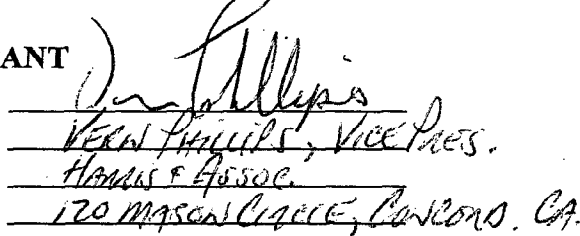 ANT
Vern Phillips
VERN PHILLIPS, VICE PRES.
HARRIS & ASSOC.
120 MASON CIRCLE, CONCORD. CA.